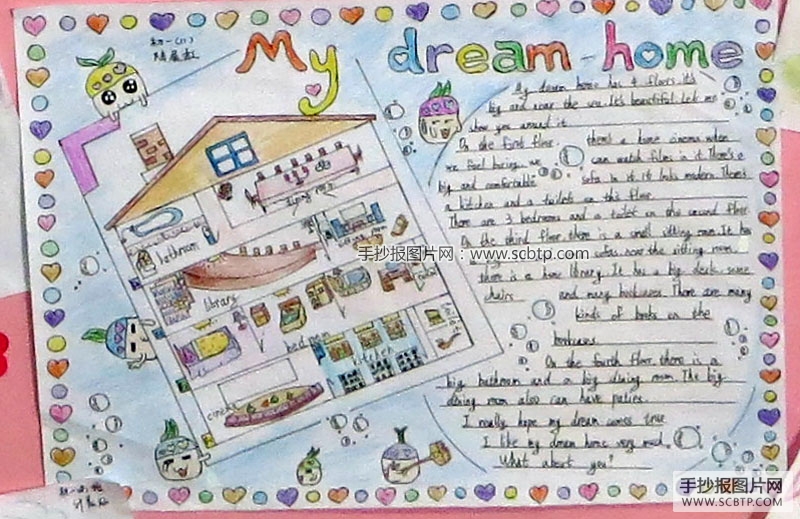 My dream home
初一(1)
My dream home has 4 floors. It's
big and near the sea. It's beautiful. Let me
show you around it.
On the first floor, there's a home cinema when
we feel boring, we can watch films in it. There's a
big and comfortable sofa in it. It looks modern. There's
a kitchen and a toilet on this floor.
There are 3 bedrooms and a toilet on the second floor.
On the third floor, there is a small sitting room. It has
sofas. near the sitting room
there is a home library. It has a big desk, some
chairs and many bookcases. There are many
kinds of books on the
bookcases.
On the fourth floor, there is a
big bathroom and a big dining room. The big
dining room also can have parties.
I really hope my dream comes true
I like my dream home very mud.
What about you?
dining room
bathroom
library
bedroom
kitchen
cinema
toilet
手抄报图片网:www.scbtp.com
手抄报图片网
WWW.SCBTP.COM